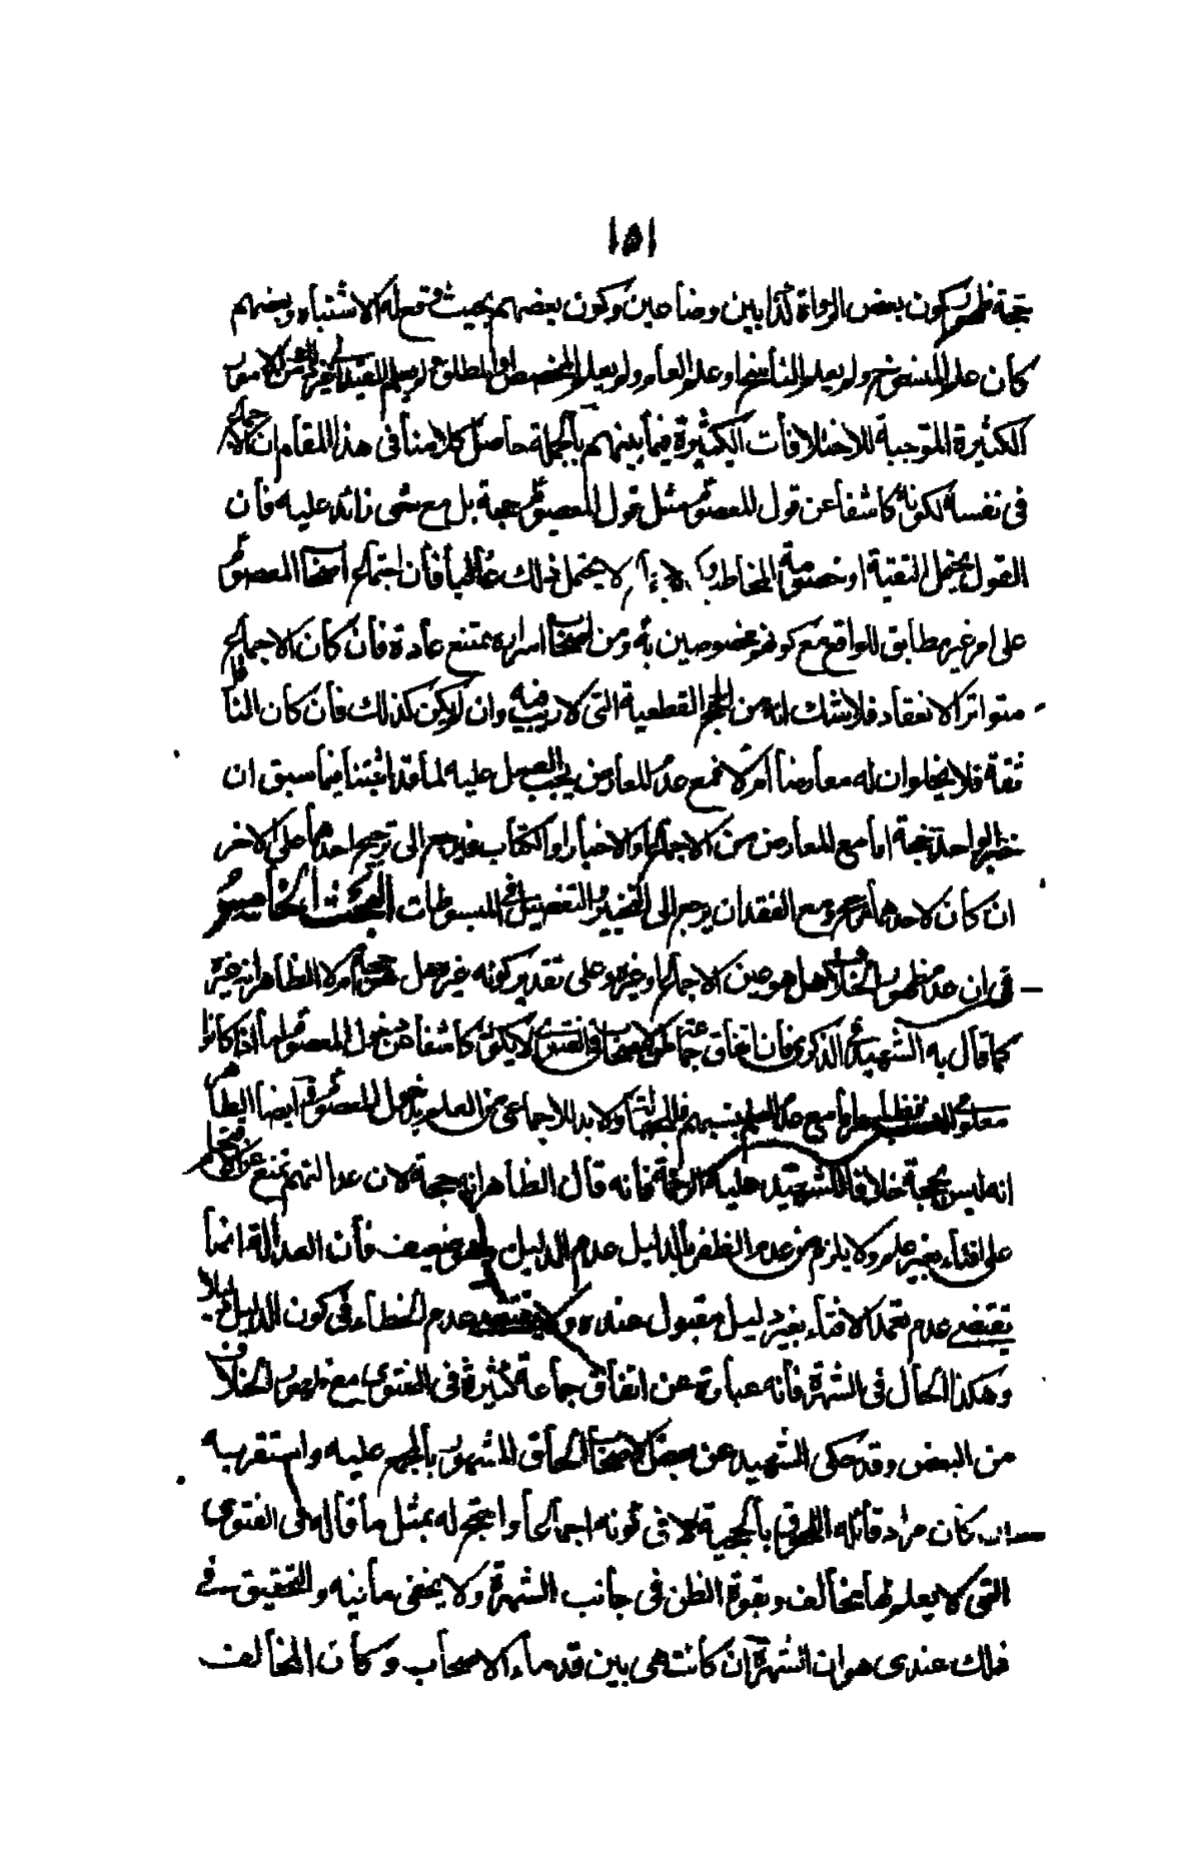 ١٥١
حجة فظهر بكون بعض الرواة كذابين وضاعين وكون بعضهم بحيث وقع له الاشتباه وبعضهم
كان علم المنسوخ ولم يعلم الناسخ او علم العام ولم يعلم المخصص او المطلق ولم يعلم المقيد الى غير ذلك من الامور
الكثيرة الموجبة للاختلافات الكثيرة فيما بينهم بالجملة حاصل كلامنا فى هذا المقام ان الاجماع
فى نفسه لكونه كاشفا عن قول المعصوم مثل قول المعصوم حجة بل مع شى زائد عليه فان
القول يحتمل التقية او خصوصية المخاطب لا يحتمل ذلك غالبا فان اجتماع اصحاب المعصوم
على امر غير مطابق للواقع مع كونهم مخصوصين به ومن اصحاب اسراره ممتنع عادة فان كان الاجماع
متواتر الانعقاد فلا شك انه من الحجج القطعية التى لا ريب فيه وان لم يكن كذلك فان كان الناقل
ثقة فلا يخلو ان له معارضا ام لا فمع عدم المعارض يجب العمل عليه لما قد اثبتنا فيما سبق ان
خبر الواحد حجة اما مع المعارض من الاجماع او الاخبار او الكتاب فيرجع الى ترجيح احدهما على الاخر
ان كان لاحدهما مرجح ومع الفقدان يرجع الى التخيير والتفصيل فى المبسوطات البحث الخامس
فى ان عدم ظهور الخلاف هل هو عين الاجماع او غيره وعلى تقدير كونه غيره هل هو حجة ام لا الظاهر انه غيره
كما قال به الشهيد فى الذكرى فان اتفاق جماعة من الاصحاب فى الفتوى لا يكون كاشفا عن دخول المعصوم اما اذا كانوا
معلومى النسب فظاهر واما مع عدم العلم بنسبهم ولا بد للاجماع من العلم بدخول المعصوم ايضا الظاهر
انه ليس بحجة خلافا للشهيد عليه الرحمة فانه قال الظاهر انه حجة لان عدالتهم تمنع عن الاقتحام
على افتاء بغير علم ولا يلزم من عدم الظفر بالدليل عدم الدليل وهو ضعيف فان العدالة انما
تقتضى عدم تعمد الافتاء بغير دليل مقبول عنده ولا يقتضى عدم الخطاء فى كون الدليل دليلا
وهكذا الحال فى الشهرة فانه عبارة عن اتفاق جماعة كثيرة فى الفتوى مع ظهور الخلاف
من البعض وقد حكى الشهيد عن بعض الاصحاب الحاق المشهور بالمجمع عليه واستقربه
ان كان مراد قائله اللحوق بالحجية لا فى كونه اجماعا واحتج له بمثل ما قاله فى الفتوى
التى لا يعلم لها مخالف وبقوة الظن فى جانب الشهرة ولا يخفى ما فيه والتحقيق فى
ذلك عندى هو ان الشهرة ان كانت هى بين قدماء الاصحاب وكان المخالف